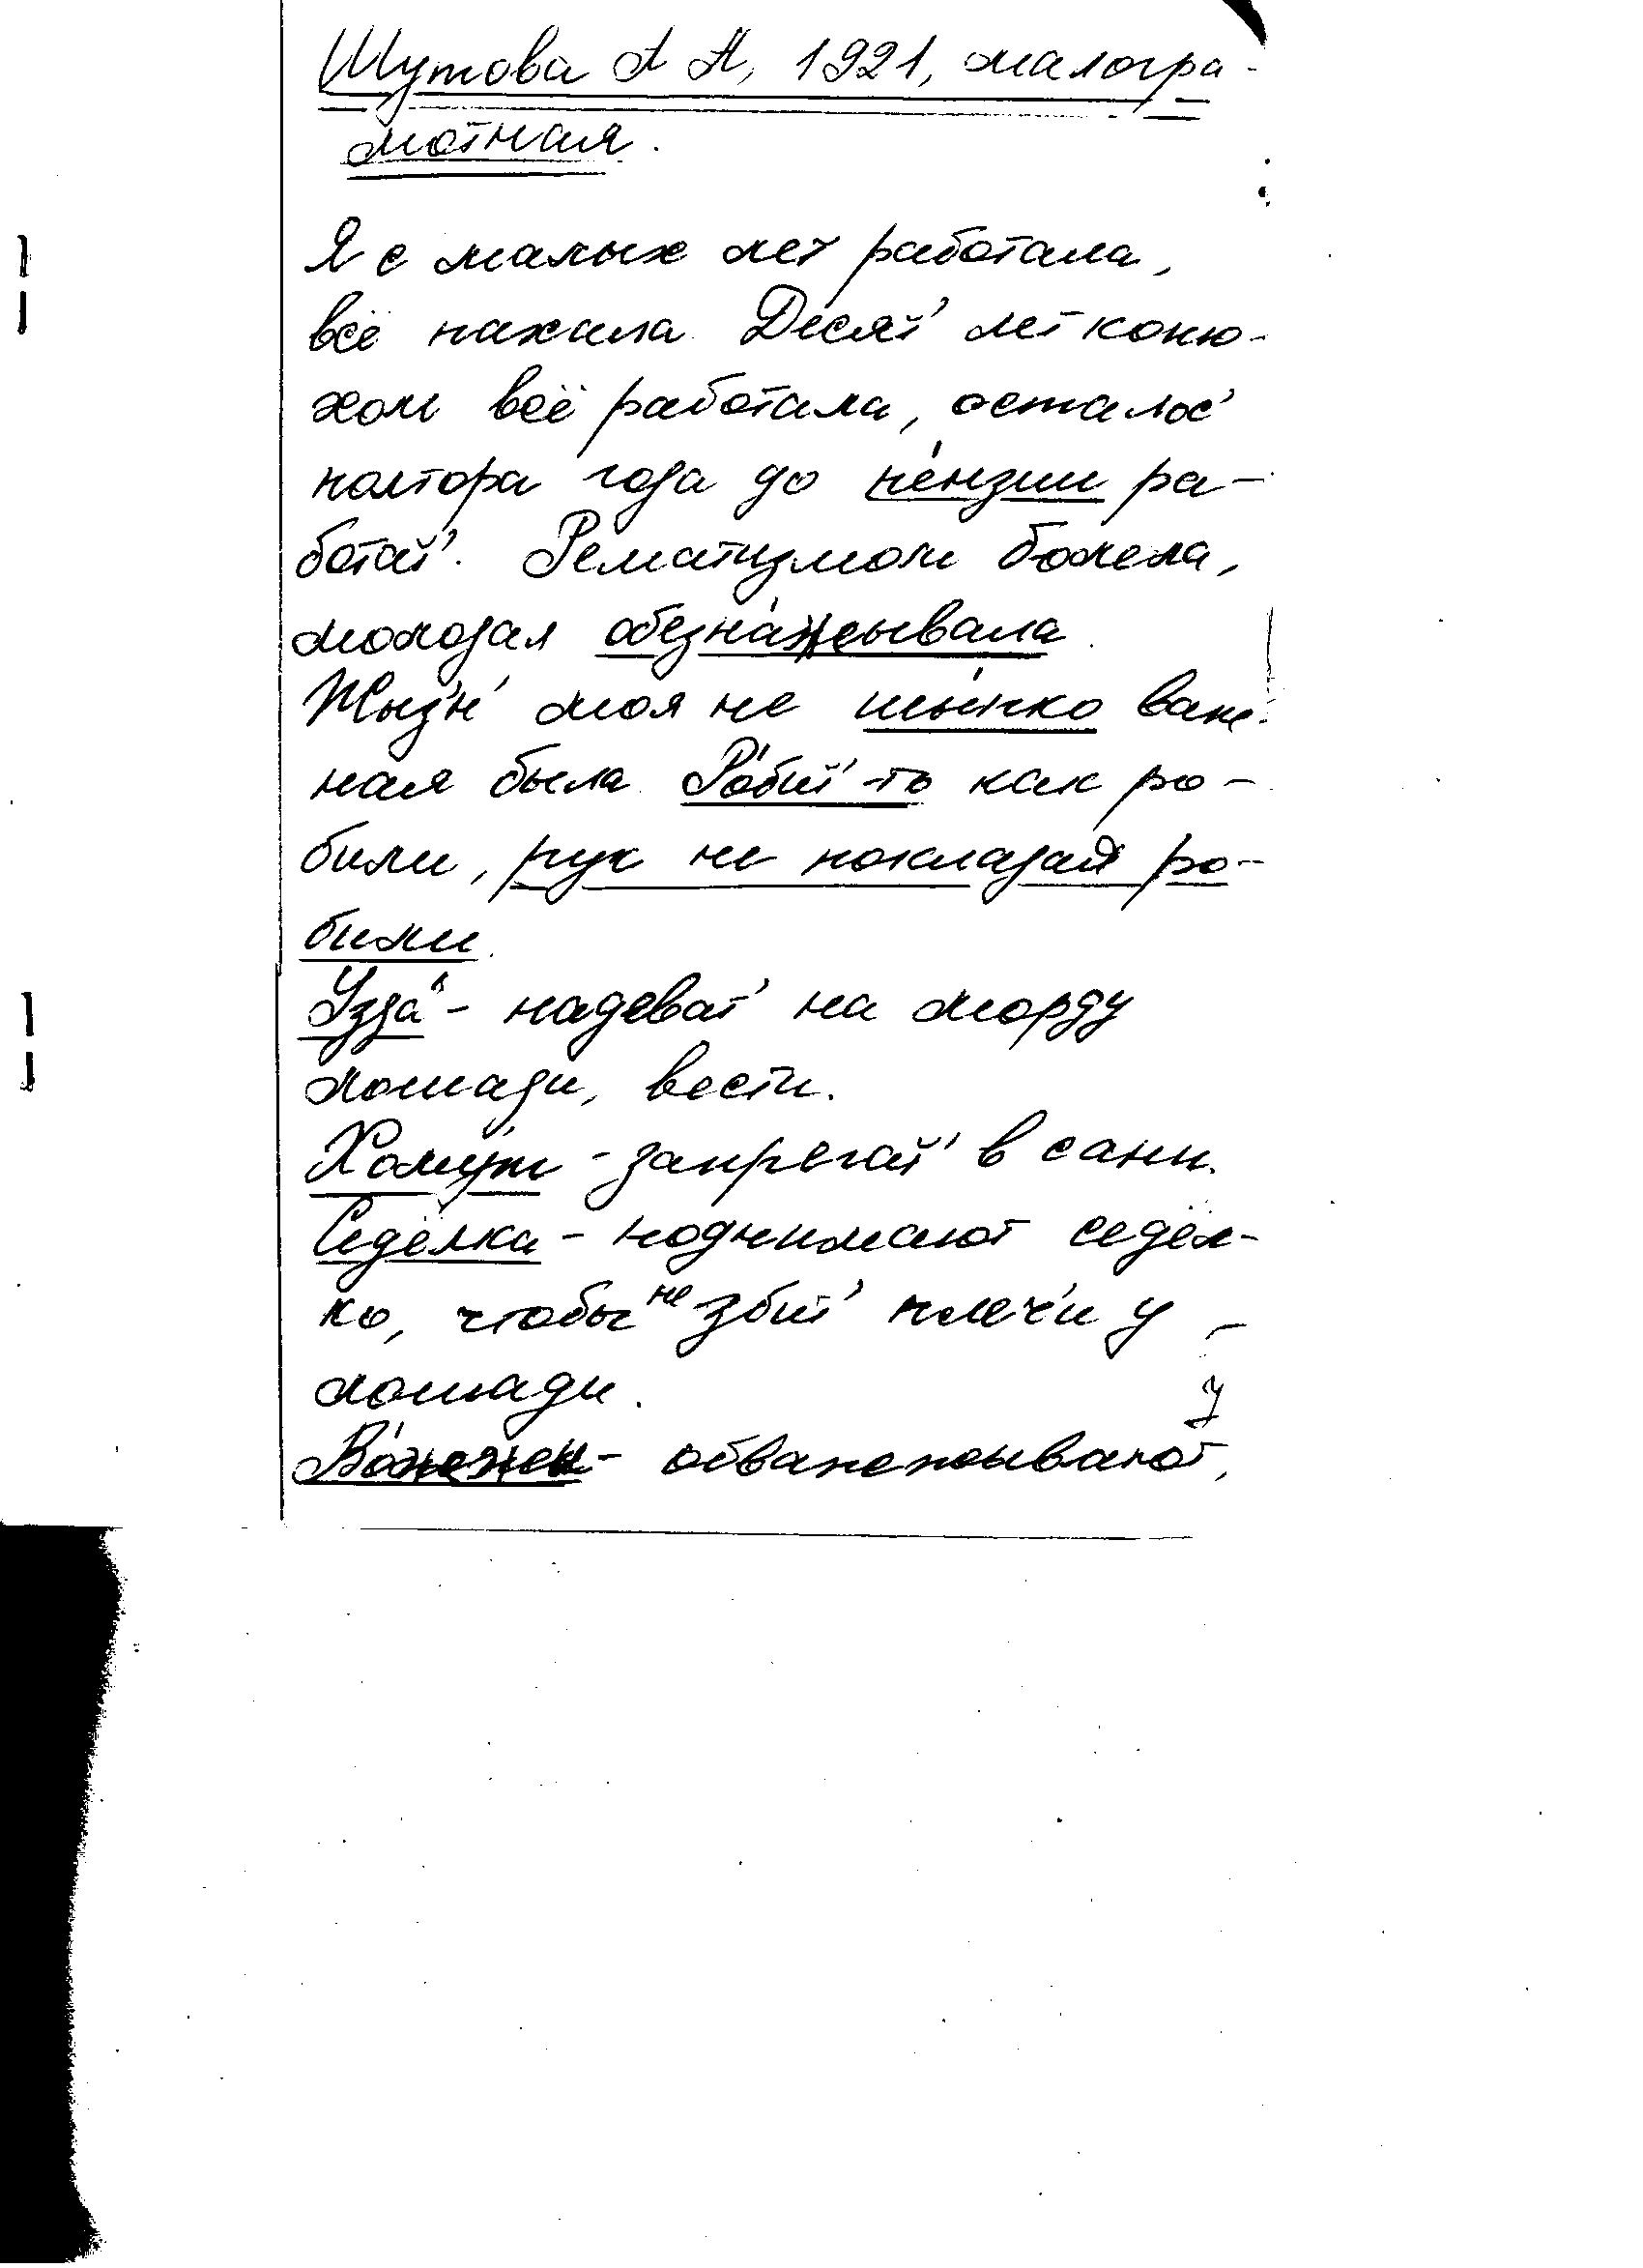 Шутова А А, 1921, малогра-
мотная.
Я с малых лет работала,
всё пахала. Десят' лет коню-
хом всё работала, осталос'
полтора года до пéнзии ра-
ботат'. Рематизмом болела,
молодая обезнáживала.
Жыз'н' моя не шы́пко важ-
ная была. Рóбит'-то как ро-
били, рук не покладая ро-
били.
Уздá - надеват' на морду
лошади, вести.
Хому́т - запрегат' в сани.
Седёлка - поднимают седёл-
ко, чтобы не збит' плеч'и у
лошади.
- обважживают,